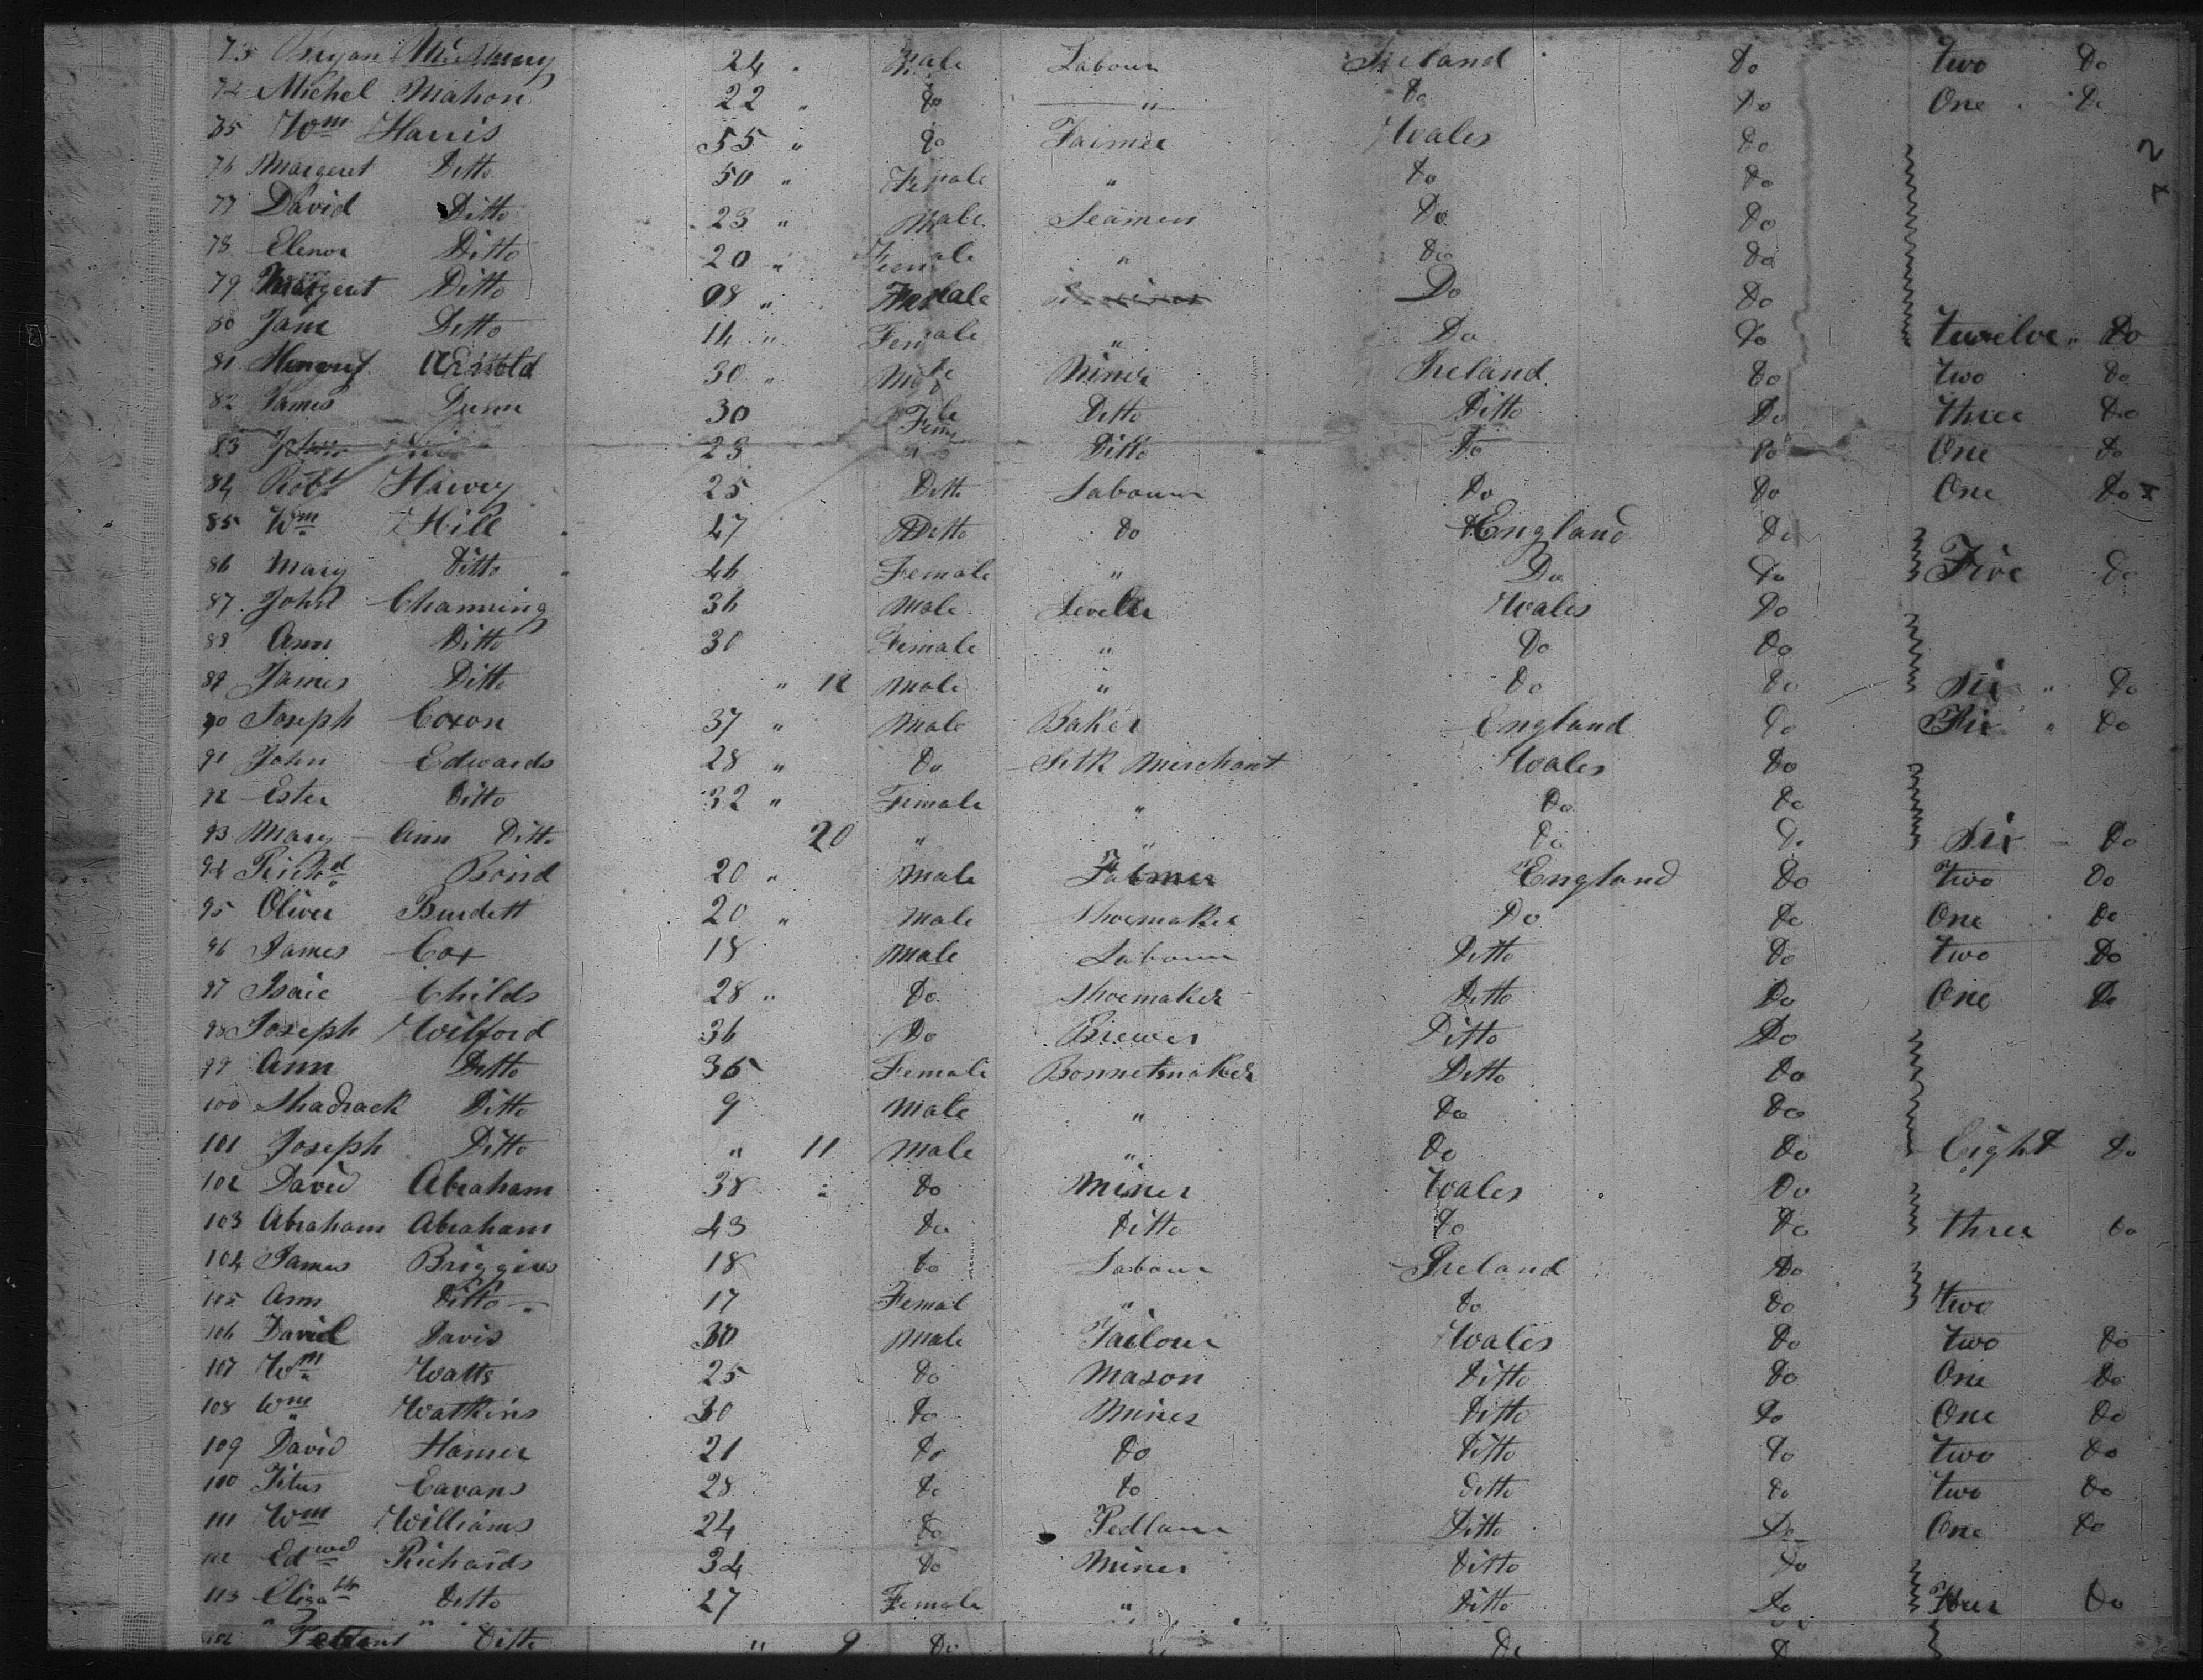 73 Bryan 24 Male Labour Ireland Do two Do
74 Michel Mahon 22 " do " Do Do One Do
75 Wm Harris 55 " do Farmer Wales Do
76 Margeret Ditto 50 " Female " Do Do
77 David Ditto 23 " Male Seamen Do Do
78 Elenor Ditto 20 " Female " Do Do
79 Margeret Ditto 08 " Female Do Do
80 Jane Ditto 14 " Female " Do Do twelve " Do
81 30 " Male Miner Ireland Do two Do
82 James Dunn 30 Ditto Ditto Do three Do
83 John 23 Ditto Do Do One Do
84 Robt Harvey 25 Ditto Labour Do Do One Do
85 Wm Hill 47 Ditto Do England Do
86 Mary Ditto 46 Female " Do Do Five Do
87 John Channing 36 Male Wales Do
88 Ann Ditto 30 Female " Do Do
89 James Ditto " 12 Male " Do Do Six " Do
90 Joseph Coxon 37 " Male Baker England Do " Do
91 John Edwards 28 " Do Silk Merchant Wales Do
92 Ester Ditto 32 " Female " Do Do
93 Mary Ann Ditto 20 " " Do Do Six Do
94 Richd Bond 20 " Male England Do two Do
95 Oliver Burdett 20 " Male Shoemaker Do Do One Do
96 James Cox 18 Male Labour Ditto Do two Do
97 Isaic Childs 28 " Do Shoemaker Ditto Do One Do
98 Joseph Wilford 36 Do Brewer Ditto Do
99 Ann Ditto 35 Female Bonnetmaker Ditto Do
100 Shadrack Ditto 9 Male " Do Do
101 Joseph Ditto " 11 Male " Do Do Eight Do
102 David Abraham 38 " Do Miner Wales Do
103 Abraham Abraham 43 Do Ditto Do Do three Do
104 James 18 Do Labour Ireland Do
105 Ann Ditto 17 Femal " Do Do two
106 David Davis 30 Male Tailour Wales Do two Do
107 Wm Watts 25 Do Mason Ditto Do One Do
108 Wm Watkins 30 Do Miner Ditto Do One Do
109 David Hamer 21 Do Do Ditto Do two Do
100 Titus Eavans 28 Do Do Ditto Do two Do
111 Wm Williams 24 Do Pedlaur Ditto Do One Do
112 Edwd Richards 34 Do Miner Ditto Do
113 Elizabth Ditto 27 Female " Ditto Do Do
Ditto " 9 Do " Do